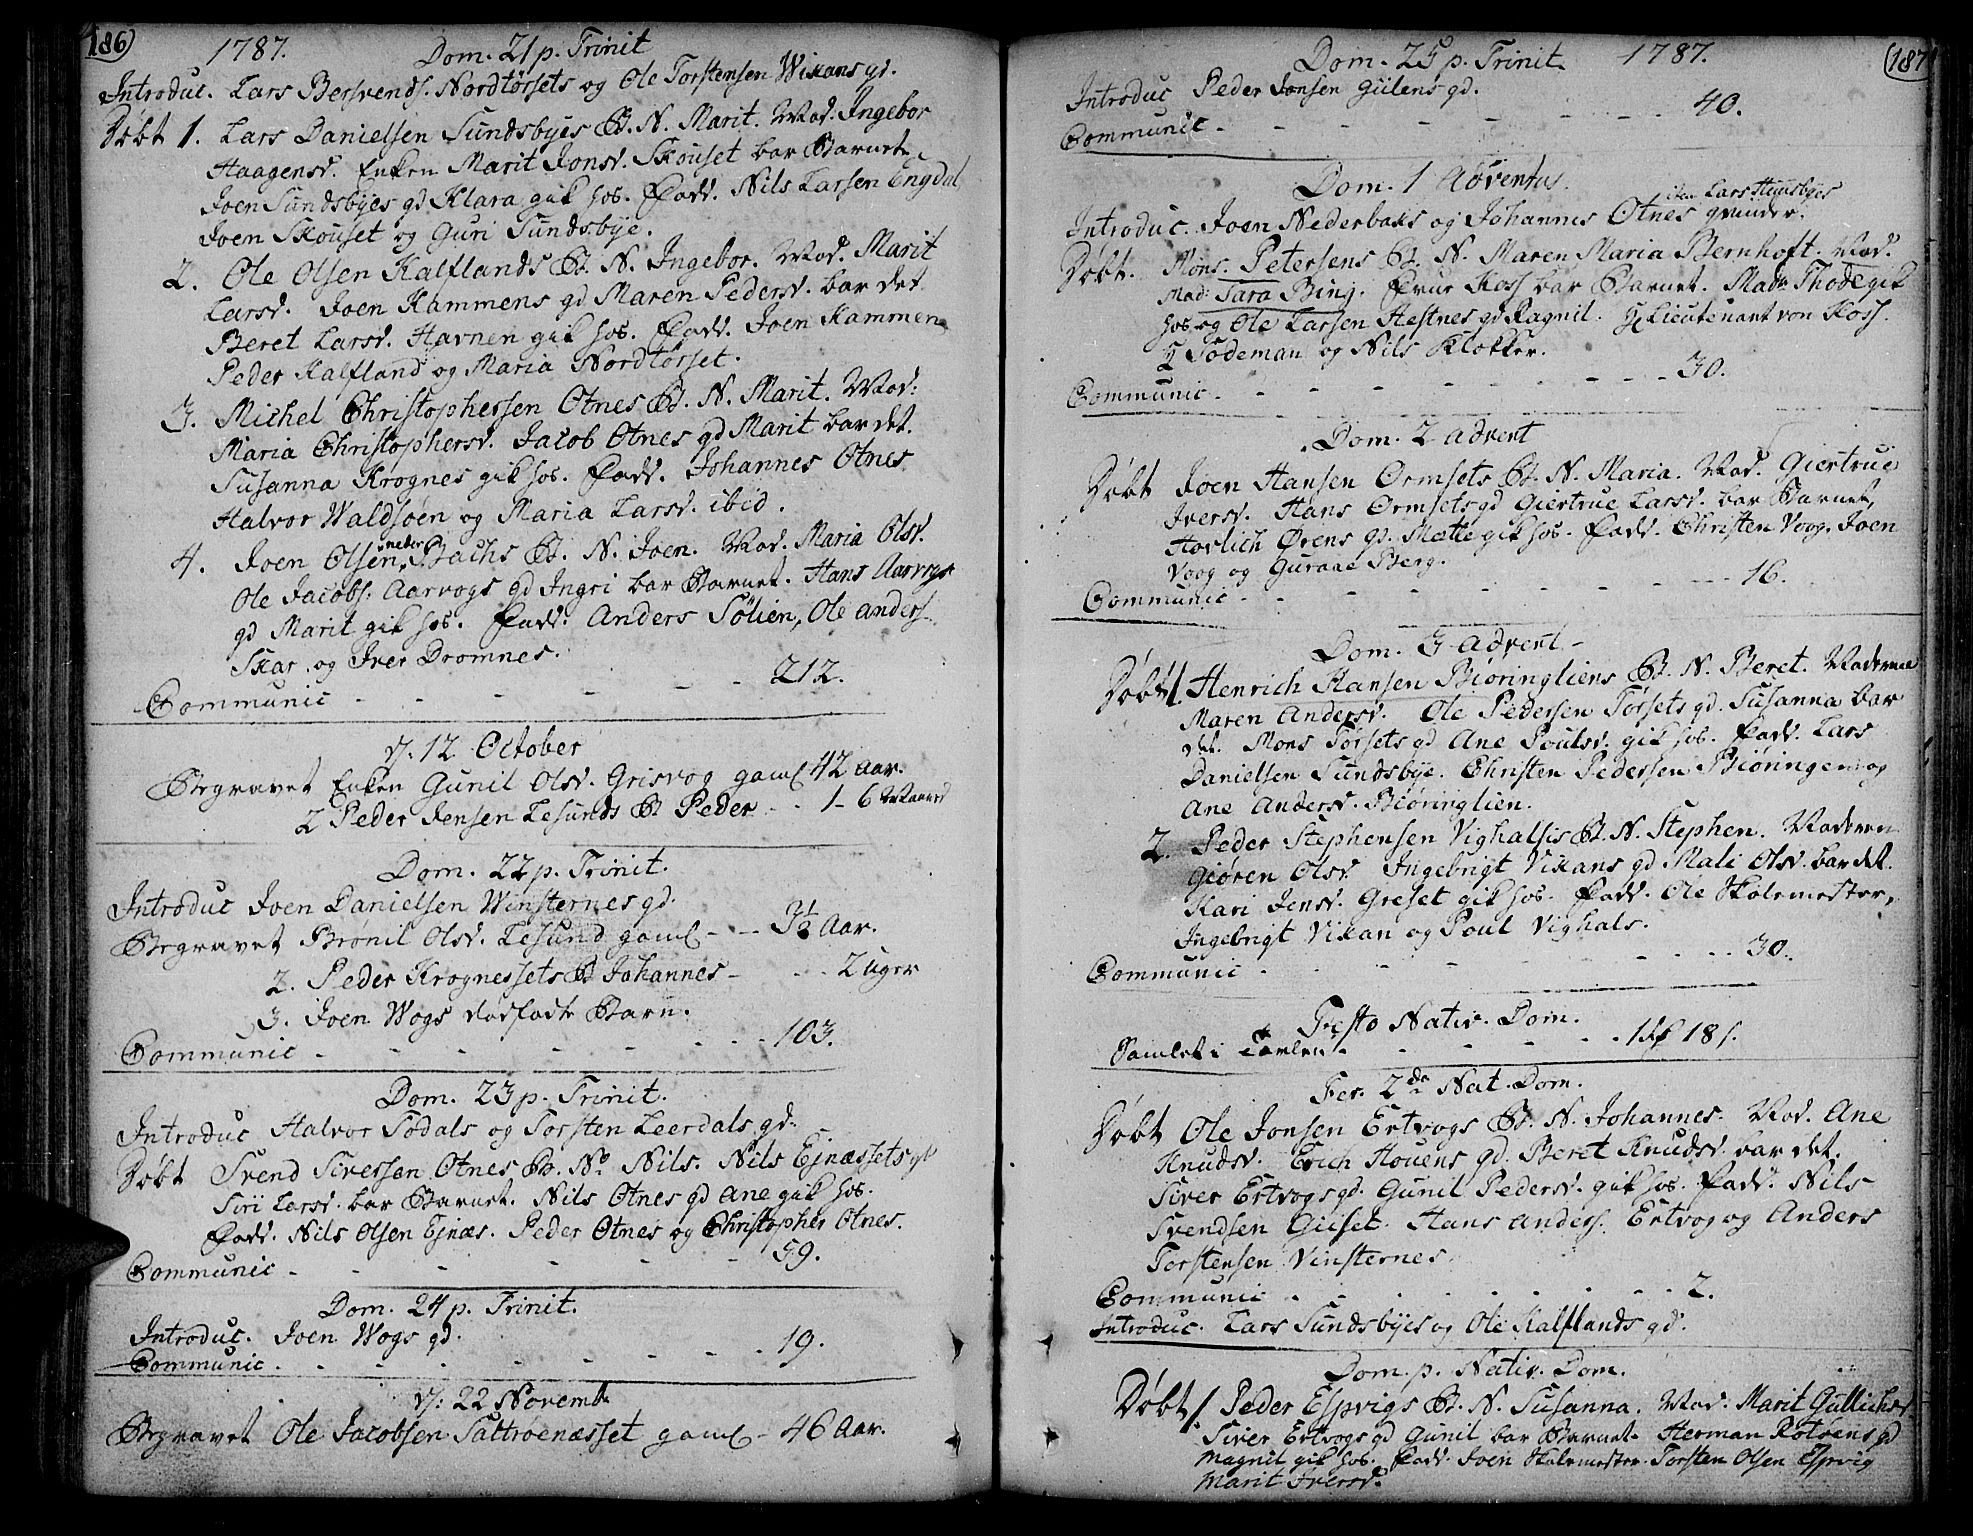 186)
1787. Dom. 21 p. Trinit
Introduc. Lars Bersvends. Nordtørsets og Ole Torstensen Wikans gd.
Døbt 1. Lars Danielsen Sundsbyes B. N. Marit. Mod. Ingebor
Haagensd. Enken Marit Jonsd. Skouset bar Barnet
Joen Sundsbyes gd Klara gik hos. Fadd. Nils Larsen Engdal
Joen Skouset og Guri Sundsbye.
2. Ole Olsen Kalflands B. N. Ingebor. Mod. Marit
Larsd. Joen Kammens gd Maren Pedersd. bar det
Beret Larsd. Havnen gik hos. Fadd. Joen Kammen
Peder Kalfland og Maria Nordtørset.
3. Michel Christophersen Otnes B. N. Marit. Mod:
Maria Christophersd. Jacob Otnes gd Marit bar det.
Susanna Krognes gik hos. Fadd. Johannes Otnes
Halvor Waldsøen og Maria Larsd. ibid.
4. Joen Olsen neder Bachs B. N. Joen. Mod. Maria Olsd.
Ole Jacobs. Aarvogs gd Ingri bar Barnet. Hans Aarvogs
gd Marit gik hos. Fadd. Anders Sølien, Ole Anders.
Skar og Iver Dromnes.
Communic - - - - 212.
d. 12 October
Begravet Enken Gunil Olsd. Grisvog gaml 42 Aar.
2 Peder Jensen Lesunds B Peder - - 1 - 6 Maaned
Dom. 22 p. Trinit.
Introduc Joen Danielsen Winsternes gd.
Begravet Brønil Olsd. Lesund gaml - - 3½ Aar.
2. Peder Krognessets B Johannes - - - 2 uger
3. Joen Wogs dødfødte Barn.
Communic - - - - 103.
Dom. 23 p. Trinit.
Introduc Halvor Sødals og Torsten Leerdals gd.
Døbt Svend Siversen Otnes B. N. Nils. Nils Ejnæssets gd
Siri Larsd. bar Barnet. Nils Otnes gd Ane gik hos.
Fadd. Nils Olsen Ejnæs. Peder Otnes og Christopher Otnes.
Communic - - - - 59.
Dom. 24 p. Trinit.
Introduc. Joen Wogs gd.
Communic. - - - - 19.
d: 22 Novemb
Begravet Ole Jacobsen Sattrøenæsset gaml - 46 Aar.
Dom. 25 p. Trinit. 1787. (187
Introduc Peder Jonsen Gülens gd.
Communic - - - - 40.
Dom. 1 Adventus.
Introduc. Joen Nederbaks og Johannes Otnes Lars Huusbyes qvinder.
Døbt. Mons. Petersens B. N. Maren Maria Bernhoft. Mod.
Mad: Sara Bing. Frue Koss bar Barnet. Madm Thode gik
hos og Ole Larsen Hestnes gd Ragnil. Hr Lieutenant von Koss.
Hr Sødeman og Nils Klokker.
Communic. - - - - 30.
Dom. 2 Advent
Døbt Joen Hansen Ormsets B. N. Maria. Mod. Giertrue
Iversd. Hans Ormsets gd Giertrue Larsd. bar Barnet,
Hovlich Ørens gd. Mætte gik hos. Fadd. Christen Voog, Joen
Voog og Guraae Berg.
Communic - - - - 16.
Dom. 3 Advent -
Døbt 1. Henrich Hansen Biøringliens B. N. Beret. Moderen
Maren Andersd. Ole Pedersen Tørsets gd. Susanna bar
det. Mons Tørsets gd Ane Poulsd. gik hos. Fadd. Lars
Danielsen Sundsbye. Christen Pedersen Biøringen og
Ane Andersd. Biøringlien.
2. Peder Stephensen Vighalsis B. N. Stephen. Moderen
Giøren Olsd Ingebrigt Vikans gd Mali Olsd. bar det.
Kari Jensd. Greset gik hos. Fadd. Ole Skolemester,
Ingebrigt Vikan og Poul Vighals.
Communic - - - - 30.
Festo Nativ. Dom.
Samlet i Tavlen - - - 18 s.
Fer. 2da Nat. Dom.
Døbt Ole Jonsen Ertvogs B. N. Johannes. Mod. Ane
Knudsd. Erich Hovens gd. Beret Knudsd. bar det.
Siver Ertvogs gd. Gunil Pedersd. gik hos. Fadd. Nils
Svendsen Giiset. Hans Anders. Ertvog og Anders
Torstensen Vinsternes
Communic - - - - 2.
Introduc. Lars Sundsbyes og Ole Kalflands gd.
Dom. p. Nativ. Dom.
Døbt 1. Peder Espvigs B. N. Susanna. Mod: Marit Gullichsd.
Siver Ertvogs gd Gunil bar Barnet. Herman Rotøens gd
Magnil gik hos. Fadd. Joen Skolemester. Torsten Olsen Espvig
Marit Iversd.